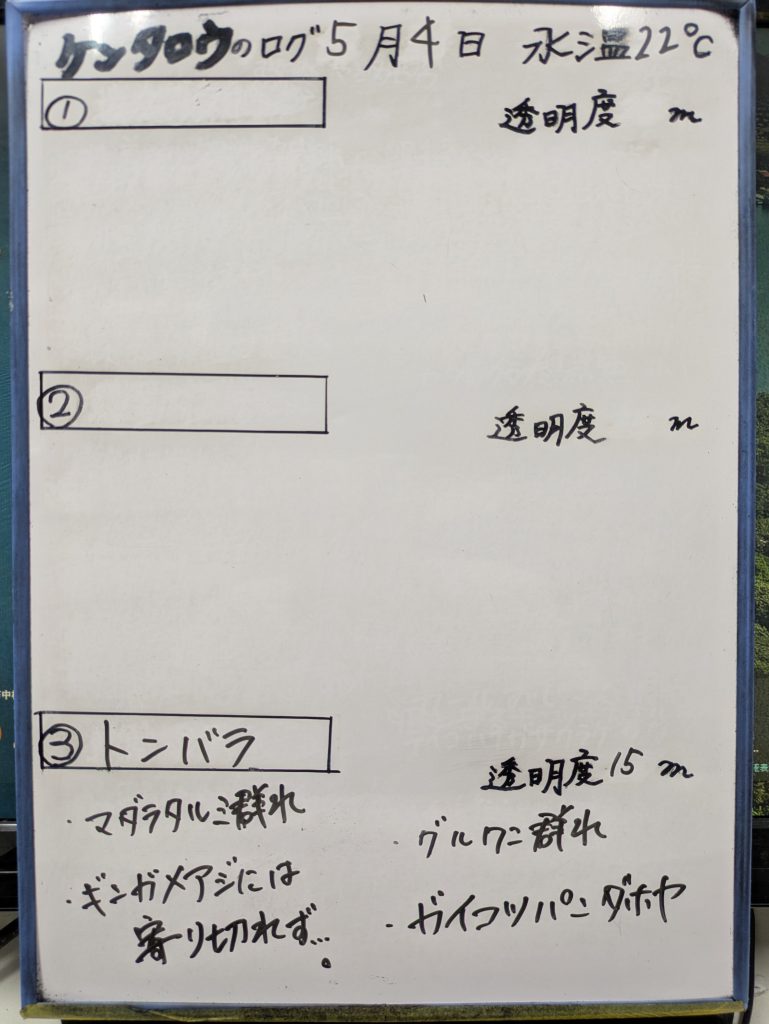 ケンタロウのログ 5月4日 水温22℃
① 透明度 m
② 透明度 m
③ トンバラ 透明度 15 m
・マダラタルミ群れ
・グルクン群れ
・ギンガメアジには
寄り切れず…。
・ガイコツパンダホヤ